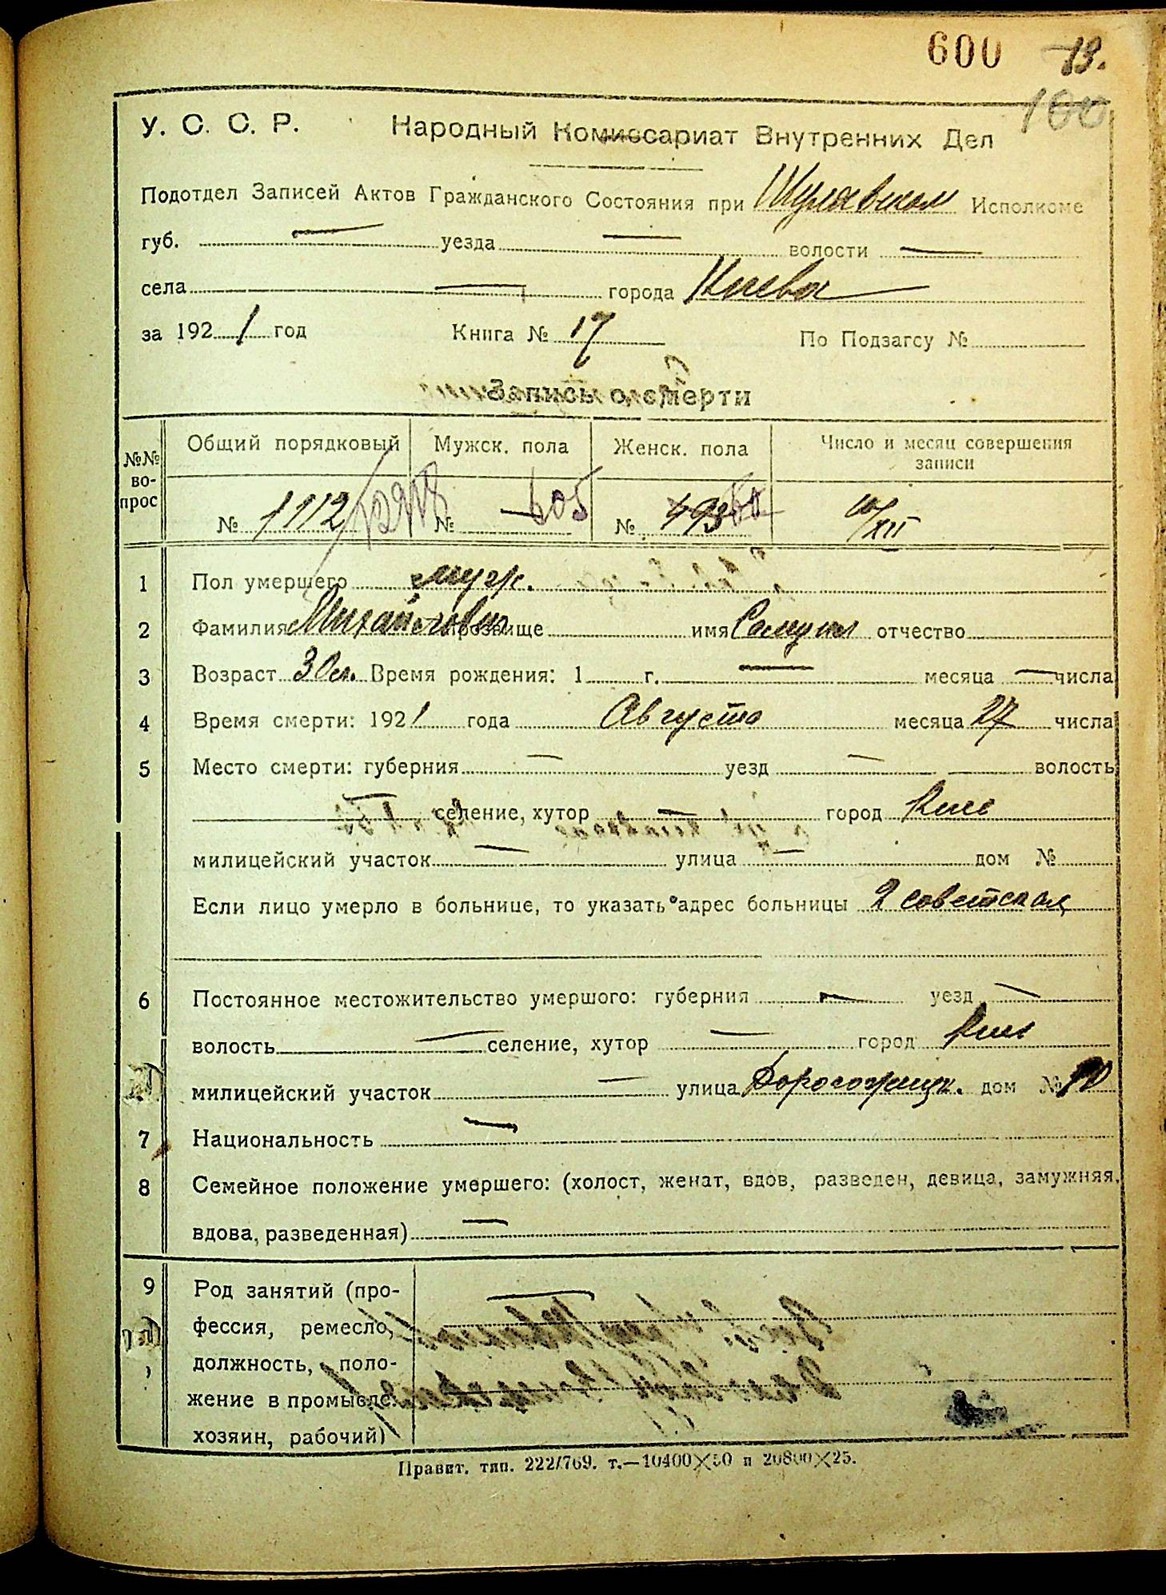 600 19.
100
У. С. С. Р. Народный Комиссариат Внутренних Дел
Подотдел Записей Актов Гражданского Состояния при Шулявском Исполкоме
губ. — уезда — волости —
села — города Киева
за 1921 год Книга № 17 По Подзагсу №
Запись о смерти
№№ вопрос Общий порядковый Мужск. пола Женск. пола Число и месяц совершения записи
№ 1112 № 605 № 10/XII
1 Пол умершего муж.
2 Фамилия Михайлович прозвище имя Самуил отчество
3 Возраст 30 л. Время рождения: 1 г. — месяца — числа
4 Время смерти: 1921 года Августа месяца 27 числа
5 Место смерти: губерния — уезд — волость
— селение, хутор — город Киев
милицейский участок — улица — дом №
Если лицо умерло в больнице, то указать адрес больницы 2 советская
6 Постоянное местожительство умершого: губерния — уезд —
волость — селение, хутор — город Киев
милицейский участок — улица Дорогожицк. дом №
7 Национальность —
8 Семейное положение умершего: (холост, женат, вдов, разведен, девица, замужняя,
вдова, разведенная) —
9 Род занятий (про- —
фессия, ремесло,
должность, поло-
жение в промысле:
хозяин, рабочий)
Правит. тип. 222/769. т.—10400×50 и 20800×25.